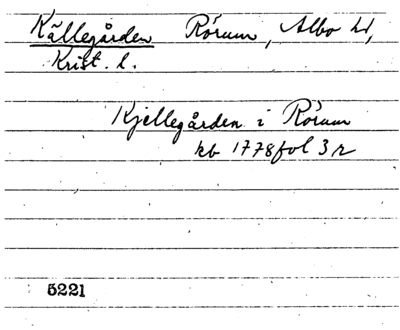 Källegården Rörum, Albo hd,
Krist. l.
Kjellegården i Rörum
kb 1778 fol 3 r
5221